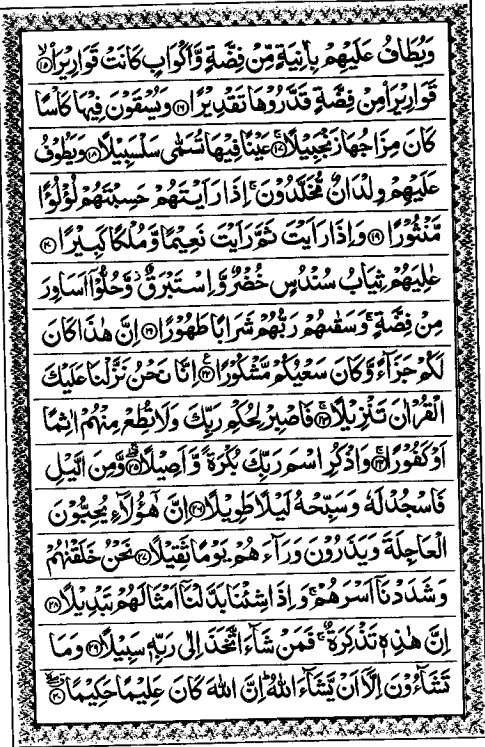 وَيُطَافُ عَلَيْهِمْ بِاٰنِيَةٍ مِّنْ فِضَّةٍ وَّاَكْوَابٍ كَانَتْ قَوَارِيْرَا۟ ۙ﴿۱۵﴾
قَوَارِيْرَا۟ مِنْ فِضَّةٍ قَدَّرُوْهَا تَقْدِيْرًا﴿۱۶﴾ وَيُسْقَوْنَ فِيْهَا كَاْسًا
كَانَ مِزَاجُهَا زَنْجَبِيْلًا ۚ﴿۱۷﴾ عَيْنًا فِيْهَا تُسَمّٰى سَلْسَبِيْلًا﴿۱۸﴾ وَيَطُوْفُ
عَلَيْهِمْ وِلْدَانٌ مُّخَلَّدُوْنَ ۚ اِذَا رَاَيْتَهُمْ حَسِبْتَهُمْ لُؤْلُؤًا
مَّنْثُوْرًا﴿۱۹﴾ وَاِذَا رَاَيْتَ ثَمَّ رَاَيْتَ نَعِيْمًا وَّمُلْكًا كَبِيْرًا﴿۲۰﴾
عٰلِيَهُمْ ثِيَابُ سُنْدُسٍ خُضْرٌ وَّاِسْتَبْرَقٌ ۫ وَّحُلُّوْۤا اَسَاوِرَ
مِنْ فِضَّةٍ ۚ وَسَقٰىهُمْ رَبُّهُمْ شَرَابًا طَهُوْرًا﴿۲۱﴾ اِنَّ هٰذَا كَانَ
لَكُمْ جَزَآءً وَّكَانَ سَعْيُكُمْ مَّشْكُوْرًا ۧ﴿۲۲﴾ اِنَّا نَحْنُ نَزَّلْنَا عَلَيْكَ
الْقُرْاٰنَ تَنْزِيْلًا ۚ﴿۲۳﴾ فَاصْبِرْ لِحُكْمِ رَبِّكَ وَلَا تُطِعْ مِنْهُمْ اٰثِمًا
اَوْ كَفُوْرًا ۚ﴿۲۴﴾ وَاذْكُرِ اسْمَ رَبِّكَ بُكْرَةً وَّاَصِيْلًا ۖۚ﴿۲۵﴾ وَمِنَ الَّيْلِ
فَاسْجُدْ لَهٗ وَسَبِّحْهُ لَيْلًا طَوِيْلًا﴿۲۶﴾ اِنَّ هٰۤؤُلَآءِ يُحِبُّوْنَ
الْعَاجِلَةَ وَيَذَرُوْنَ وَرَآءَهُمْ يَوْمًا ثَقِيْلًا﴿۲۷﴾ نَحْنُ خَلَقْنٰهُمْ
وَشَدَدْنَاۤ اَسْرَهُمْ ۚ وَاِذَا شِئْنَا بَدَّلْنَاۤ اَمْثَالَهُمْ تَبْدِيْلًا﴿۲۸﴾
اِنَّ هٰذِهٖ تَذْكِرَةٌ ۚ فَمَنْ شَآءَ اتَّخَذَ اِلٰى رَبِّهٖ سَبِيْلًا﴿۲۹﴾ وَمَا
تَشَآءُوْنَ اِلَّاۤ اَنْ يَّشَآءَ اللّٰهُ ؕ اِنَّ اللّٰهَ كَانَ عَلِيْمًا حَكِيْمًا ۖۗ﴿۳۰﴾